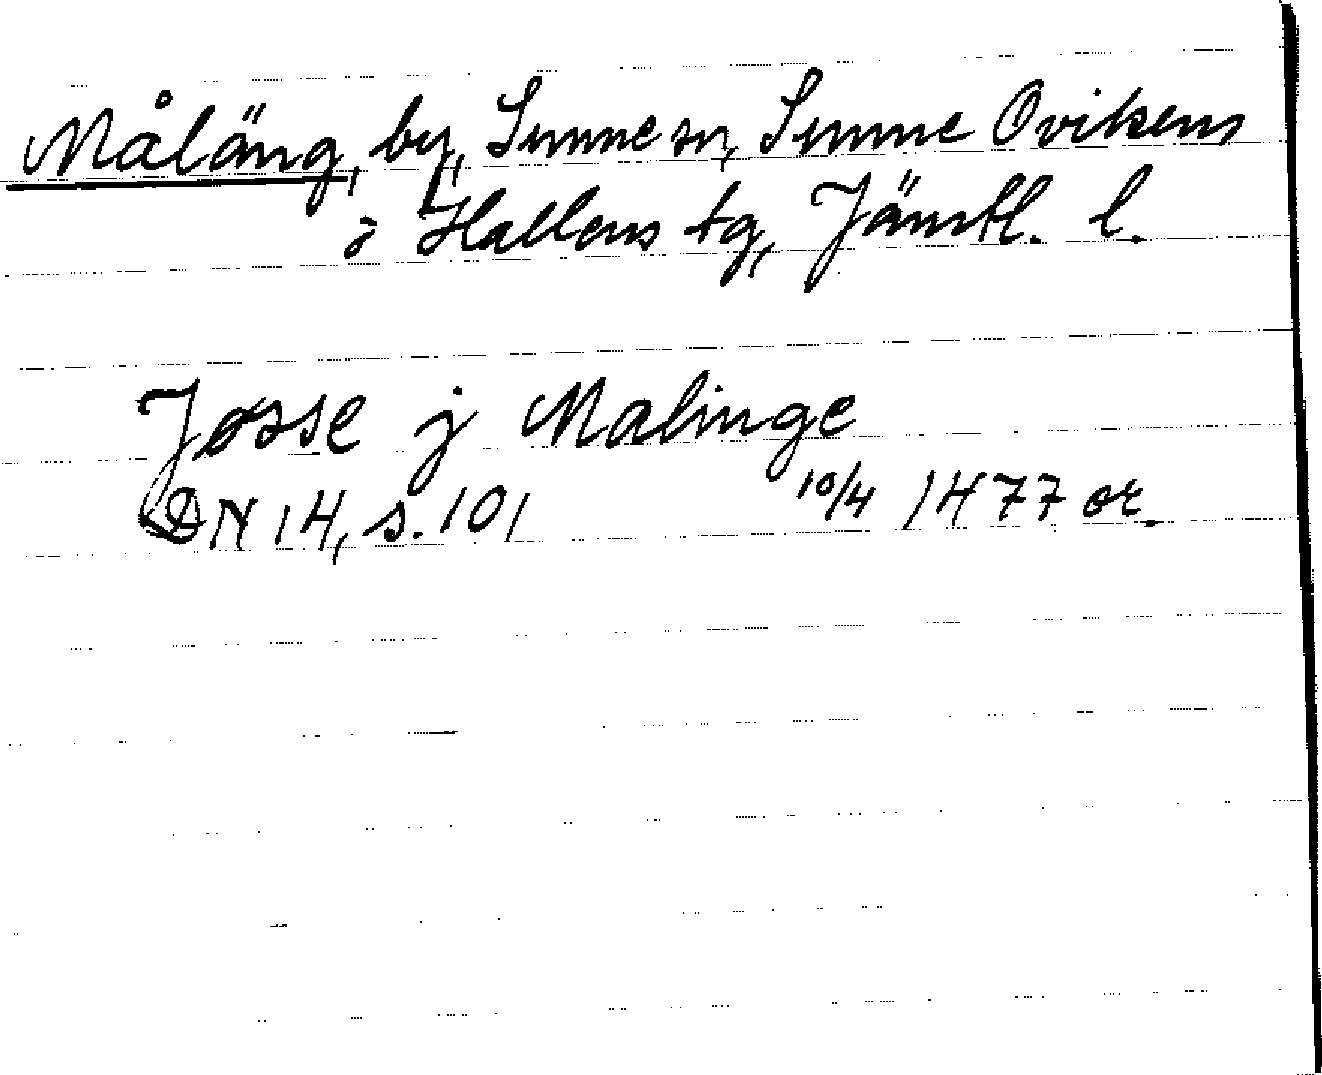 Måläng, by, Sunne sn, Sunne Ovikens
o Hallens tg, Jämtl. l.
Jøsse j Malinge
DN 14, s. 101 10/4 1477 or.